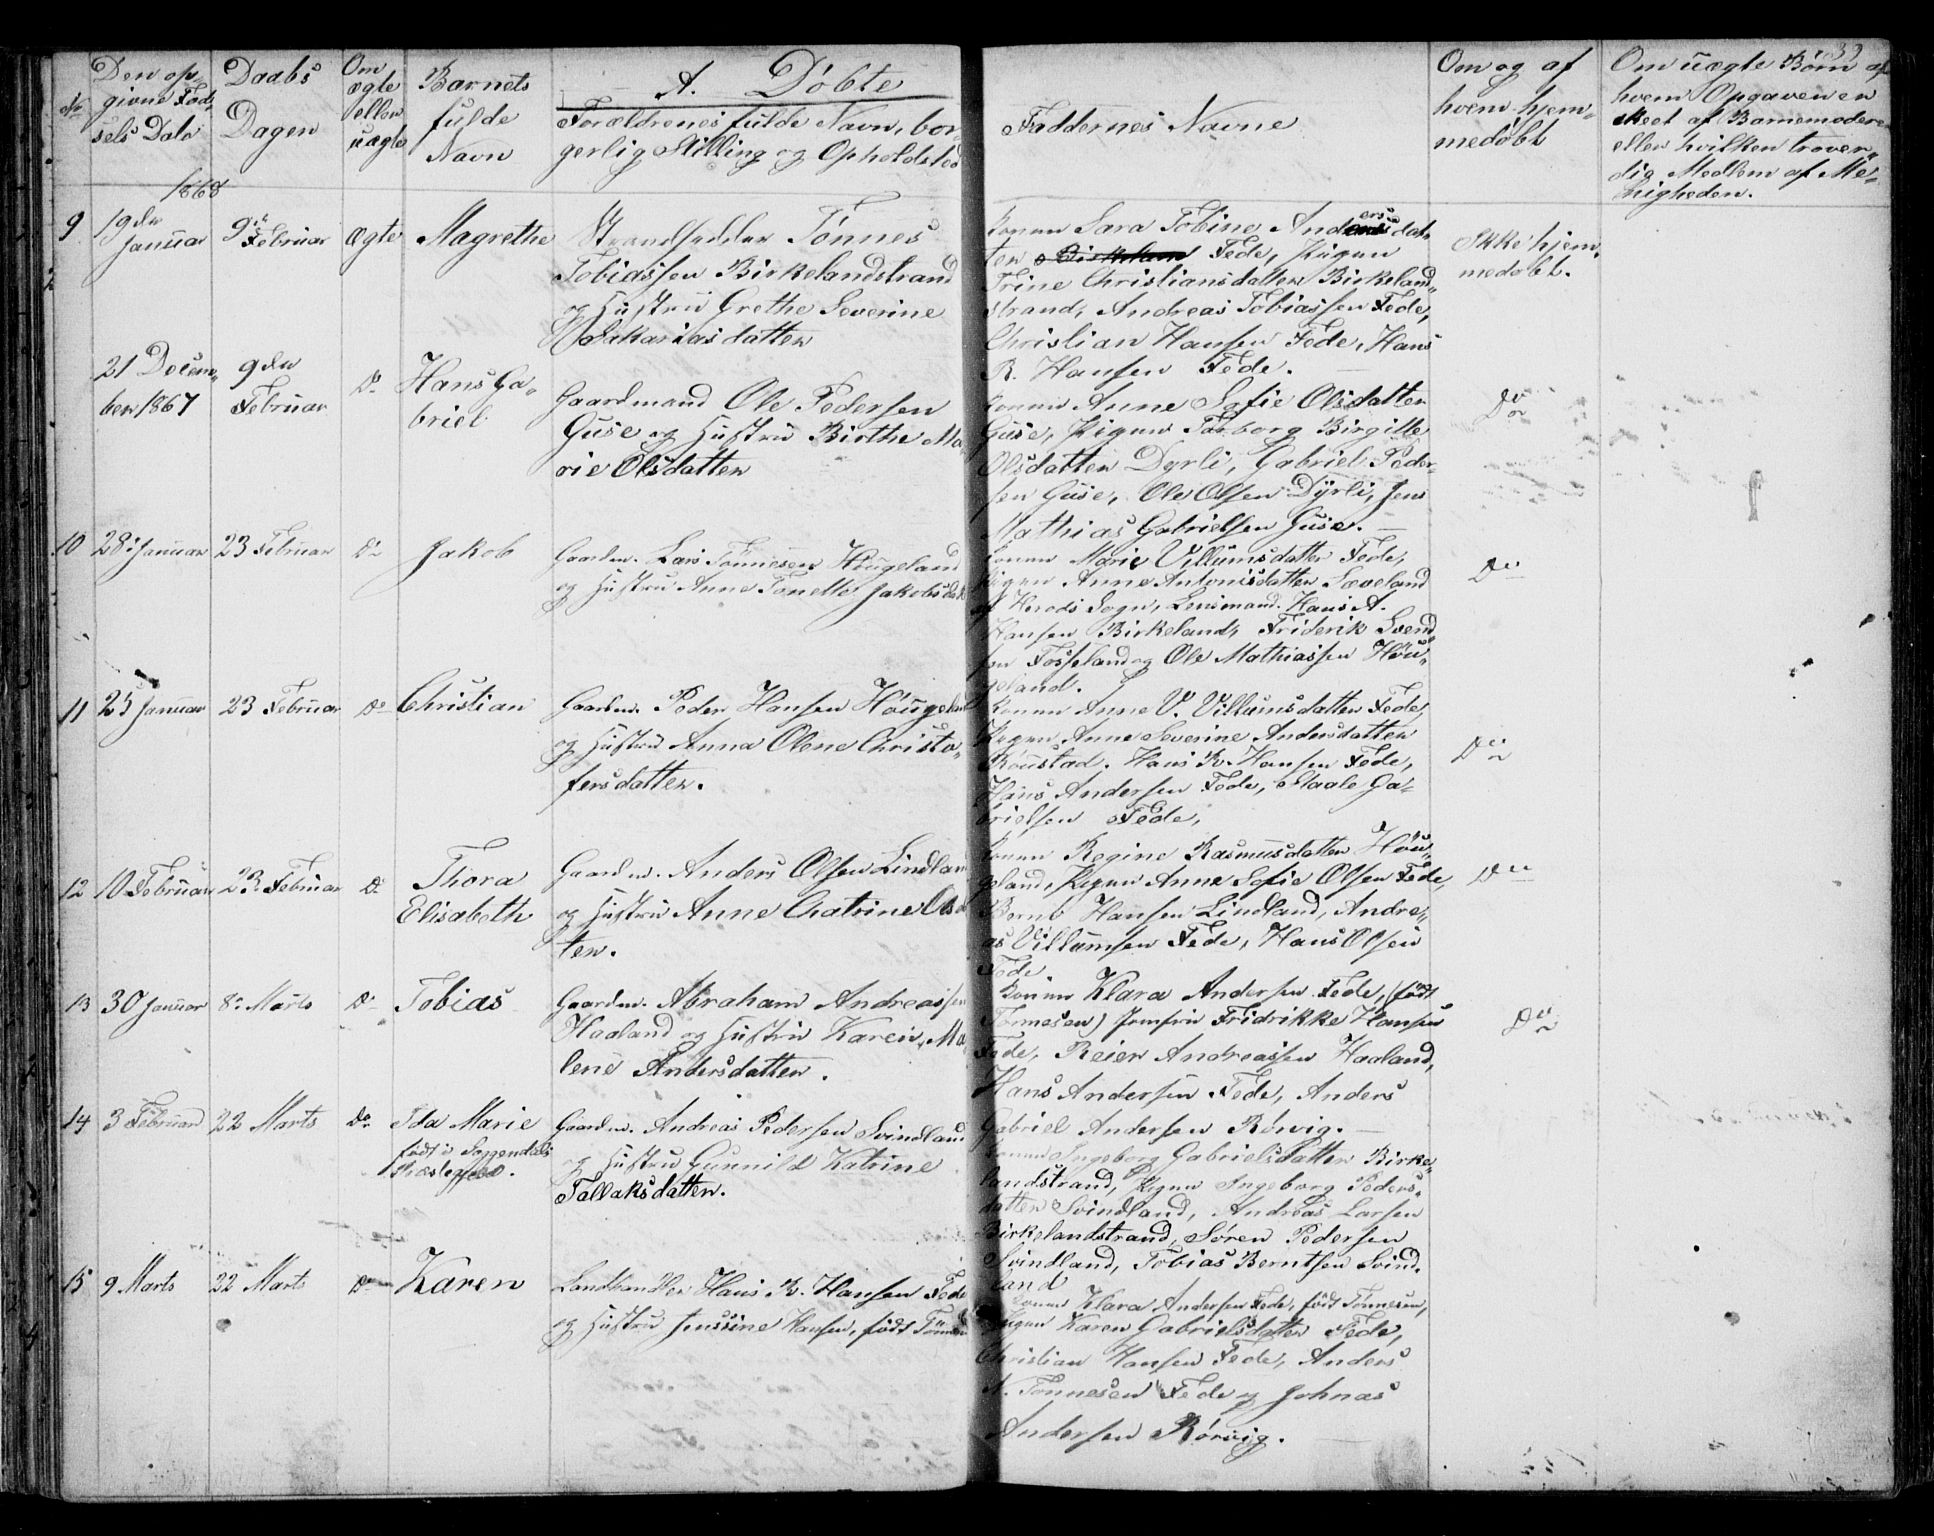 39
No
Den op-
givne Fød-
sels Dato
Daabs
Dagen
Om
ægte
eller
uægte
Barnets
fulde
Navn
A. Døbte
Forældrenes fulde Navn, bor-
gerlig Stilling og Opholdsted
Faddernes Navne
Om og af
hvem hjem-
medøbt
Om uægte Børn af
hvem Opgaven er
skeet af Barnemoderen
eller hvilken trover-
dig Medlem af Me-
nigheden.
1868
9
19de
Januar
9de
Februar
Ægte
Magrethe
Strandsedder Tønnes
Tobiassen Birkelandstrand
og Hustru Grethe Severine
Sakariasdatter
Konen Sara Tobine Andersdat-
ter Fede, Pigen
Trine Christiansdatter Birkeland-
strand, Andreas Tobiassen Fede,
Christian Hansen Fede, Hans
R. Hansen Fede.
Ikke hjem-
medøbt.
21 Decem-
ber 1867
9de
Februar
Do
Hans Ga-
briel
Gaardmand Ole Pedersen
Guse og Hustru Birthe Ma-
rie Olsdatter
Konen Anne Sofie Olsdatter
Guse, Pigen Torborg Birgitte
Olsdatter Dyrli, Gabriel Peder-
sen Guse, Ole Olsen Dyrli, Jens
Mathias Gabrielsen Guse.
Do
10
28 Januar
23 Februar
Do
Jakob
Gaardm. Lars Tønnesen Høugeland
og Hustru Anne Tonette Jakobsdat
Konen Marie Villumsdatter Fede,
Pigen Anne Antonisdatter Sæveland
af Herads Sogn, Lensmand Hans A.
Hansen Birkeland, Friderik Svend-
sen Fosseland og Ole Mathiassen Høu-
geland.
Do
11
25 Januar
23 Februar
Do
Christian
Gaardm. Peder Hansen Høugeland
og Hustru Anna Olene Christo-
fersdatter.
Konen Anne V. Villumsdatter Fede,
Pigen Anne Severine Andersdatter
Røustad, Hans R. Hansen Fede,
Hans Andersen Fede, Staale Ga-
brielsen Fede,
Do
12
10 Februar
23 Februar
Do
Thora
Elisabeth
Gaardm. Anders Olsen Lindland
og Hustru Anne Chatrine Olsdat
ter.
Konen Regine Rasmusdatter Høu-
geland, Pigen Anne Sofie Olsen Fede,
Bernt Hansen Lindland, Andre-
as Villumsen Fede, Hans Olsen
Fede
Do
13
30 Januar
8de Marts
Do
Tobias
Gaardm. Abraham Andreassen
Haaland og Hustru Karen Ma-
lene Andersdatter.
Konen Klara Andersen Fede, (født
Tønnesen) Jomfru Fridrikke Hansen
Fede, Reier Andreassen Haaland,
Hans Andersen Fede, Anders
Gabriel Andersen Rørvig.
Do
14
3 Februar
22 Marts
Do
Ida Marie
født i Soggendals
Præstegjeld.
Gaardm. Andreas Pedersen Svindland
og Hustru Gunnild Katrine
Tallaksdatter.
Konen Ingeborg Gabrielsdatter Birke-
landstrand, Pigen Ingeborg Peders-
datter Svindland, Andreas Larsen
Birkelandstrand, Søren Pedersen
Svindland, Tobias Berntsen Svind-
land
15
9 Marts
22 Marts
Do
Karen
Landhandler Hans R. Hansen Fede
og Hustru Jenssine Hansen, født Tønnesen
Konen Klara Andersen Fede, født Tønnesen,
Pigen Karen Gabrielsdatter Fede,
Christian Hansen Fede, Anders
N. Tønnesen Fede og Johnas
Andersen Rørvig.